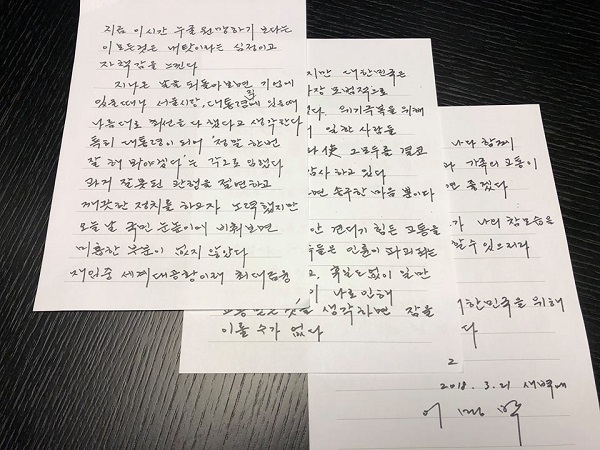 지금 이 시간 누굴 원망하기 보다는
이 모든것은 내 탓이라는 심정이고
자책감을 느낀다
지나온 날을 되돌아보면 기업에
있을때나 서울시장, 대통령직에 있을때
나름대로 최선을 다 했다고 생각한다
특히 대통령이 되어 '정말 한번
잘 해 봐야겠다'는 각오로 임했다
과거 잘못된 관행을 절연하고
깨끗한 정치를 하고자 노력했지만
오늘 날 국민 눈높이에 비춰보면
미흡한 부분이 없지 않았다
재임중 세계대공황이래 최대금융
지만 대한민국은
가장 모범적으로
다. 위기극복을 위해
일한 사람들
使 그모두를 결코
감사 하고 있다
면 송구한 마음 뿐이다
안 견디기 힘든 고통을
들은 인륜이 파괴되는
고, 휴일도 없이 일만
가 나로 인해
생각하면 잠을
이룰 수가 없다
나와 함께
가족의 고통이
면 좋겠다
가 나의 참모습을
할 수 있으리라
대한민국을 위해
다
2018. 3. 21 새벽에
이 명 박